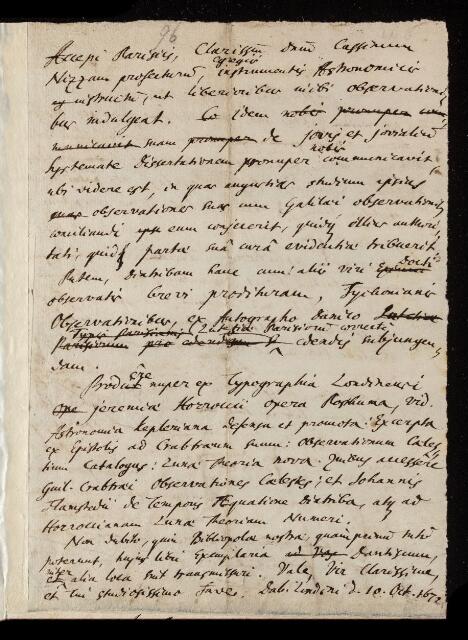 96
Accepi Parisiis, Clariss̄m Dnūm Cassinum
Nizzam profecturum, egregiis instrumentis Astronomicis
instructū, ut liberioribus ibi observationi
bus indulgeat. Eo idem nobis pronuper com
municavit suam pronuper de jovis et jovialiū
Systemate dissertationem pronuper nobis communicavit
ubi videre est, in quas angustias studium ipsius
observationes suas cum Galilæi observationib
conciliandi eum conjecerit, quidq illius authori
tati, quidq parta suâ curâ evidentia tribuerit.
Putem, diatribam hanc cum aliis viri Docti
observatis brevi prodituram, Tychonianis
Observationibus, ex Autographo Danico Lutetiæ
Typis Parisiensis (Lutetiæ Parisiorum correctū
Parisiorum pro edendis edendis subjungen
dam.
Prodiere nuper ex Typographia Londinensi
jeremiæ Horroccii opera Posthuma, vid.
Astronomia Kepleriana defensa et promota: Excerpta
ex Epistolis ad Crabtræum suum: observationum Cœles
tium Catalogus: Lunæ Theoria nova. Quibus accessere
Guil. Crabtræi Observationes Cœlestes; et Johannis
Flamstedii de Temporis Æquatione Diatriba, atq ad
Horroccianam Lunæ Theoriam Numeri.
Non dubito, quin Bibliopolæ nostri, quamprimū tutò
poterunt, hujus libri Exemplaria ad Dantiscum,
inter alia loca sint transmissuri. Vale Vir Clarissime,
et tui studiosissimo fave. Dab. Londini d. 10. Oct. 1672